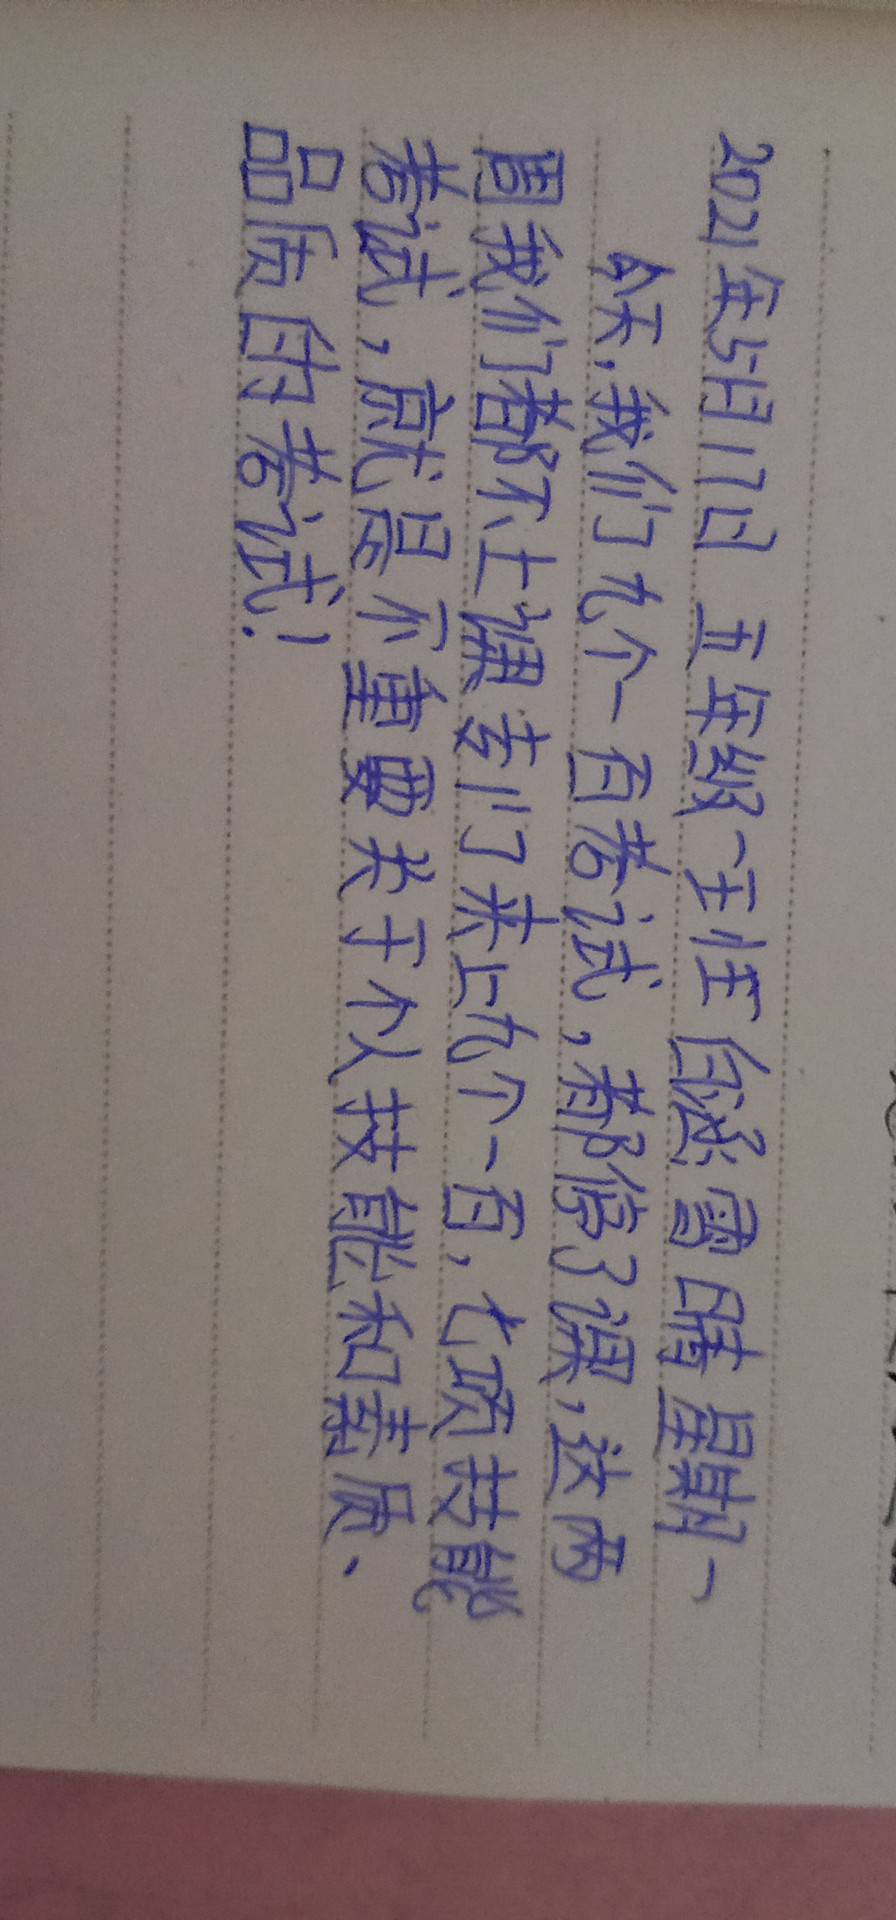 2021年5月17日 五年级一班 白泌雪 晴 星期一
今天,我们九个一百考试,都停了课,这两
周我们都不上课专门来上九个一百,七项技能
考试,就是个重要关于个人技能和素质、
品质的考试!